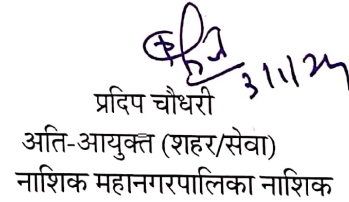 3/1/24
प्रदिप चौधरी
अति-आयुक्त (शहर/सेवा)
नाशिक महानगरपालिका नाशिक